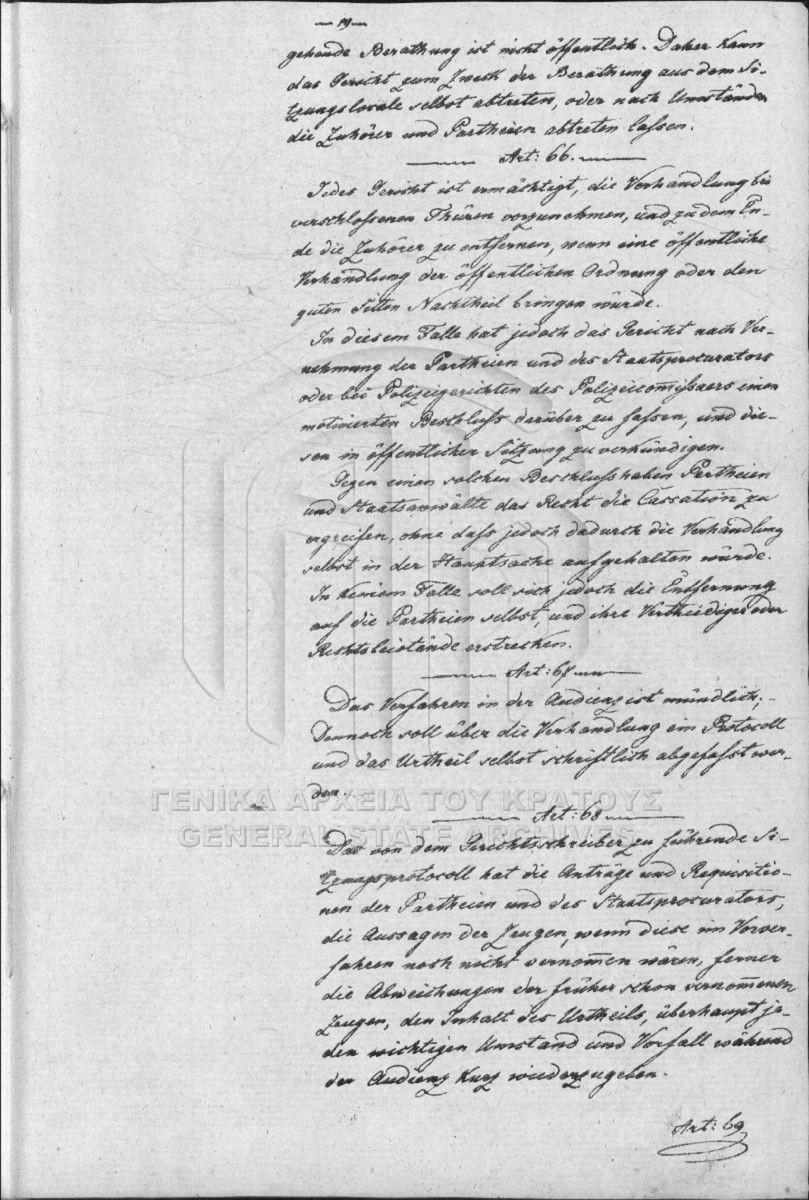 — 19 —
gehende Berathung ist nicht öffentlich. Daher kann
das Gericht zum Zweck der Berathung aus dem Si-
tzungslocale selbst abtreten, oder nach Umständen
die Zuhörer und Partheien abtreten lassen.
Art: 66.
Jedes Gericht ist ermächtigt, die Verhandlung bei
verschlossenen Thüren vorzunehmen, und zu dem En-
de die Zuhörer zu entfernen, wenn eine öffentliche
Verhandlung der öffentlichen Ordnung oder den
guten Sitten Nachtheil bringen würde.
In diesem Falle hat jedoch das Gericht nach Ver-
nehmung der Partheien und des Staatsprocurators
oder bei Polizeigerichten des Polizeicom̄issaers einen
motivierten Beschluss darüber zu fassen, und die-
sen in öffentlicher Sitzung zu verkündigen.
Gegen einen solchen Beschluss haben Partheien
und Staatsanwälte das Recht die Cassation zu
ergreifen, ohne dass jedoch dadurch die Verhandlung
selbst in der Hauptsache aufgehalten würde.
In keinem Falle soll sich jedoch die Entfernung
auf die Partheien selbst, und ihre Vertheidiger oder
Rechtsbeistände erstrecken.
Art: 67
Das Verfahren in der Audienz ist mündlich;
Dennoch soll über die Verhandlung ein Protocoll
und das Urtheil selbst schriftlich abgefasst wer-
den.
ΓΕΝΙΚΑ ΑΡΧΕΙΑ ΤΟΥ ΚΡΑΤΟΥΣ
Art: 68
GENERAL STATE ARCHIVES
Das von dem Gerichtsschreiber zu führende Si-
tzungsprotocoll hat die Anträge und Requisitio-
nen der Partheien und des Staatsprocurators,
die Aussagen der Zeugen, wenn diese im Vorver-
fahren noch nicht vernom̄en wären, ferner
die Abweichungen der früher schon vernom̄enen
Zeugen, den Inhalt des Urtheils, überhaupt je-
den wichtigen Umstand und Vorfall während
der Audienz kurz wiederzugeben.
Art: 69